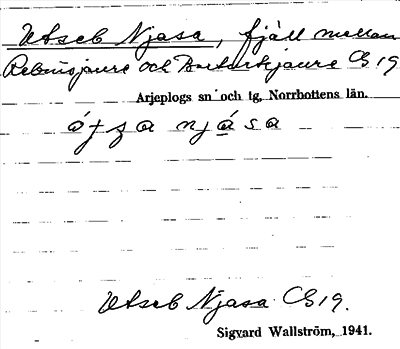 Utseb Njasa, fjäll mellan
Rebnisjaure och CG 19
Arjeplogs sn och tg, Norrbottens län.
njása
Utseb Njasa CG 19.
Sigvard Wallström, 1941.